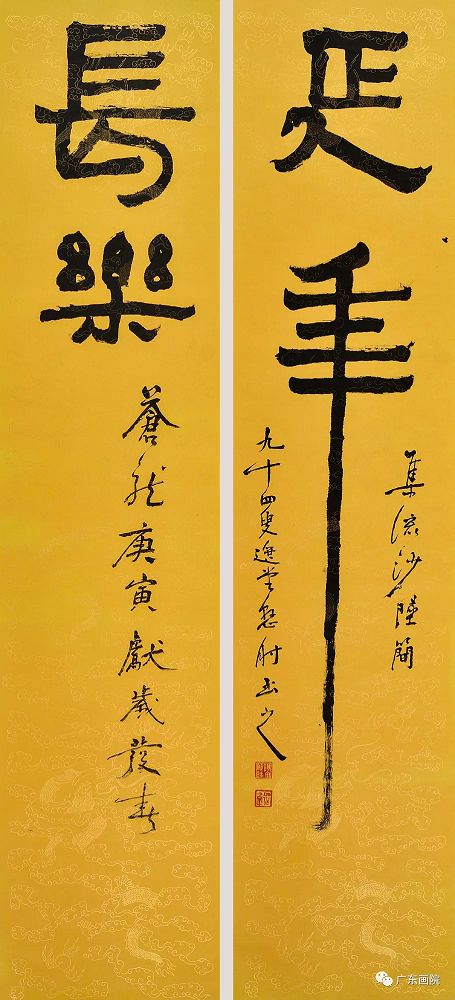 延年
集流沙墜簡
九十四叟選堂懸肘書之
長樂
蒼龍庚寅獻歲發春
广东画院